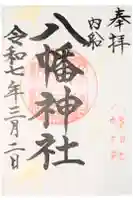 奉拝
内船
八幡神社
令和七年三月二日